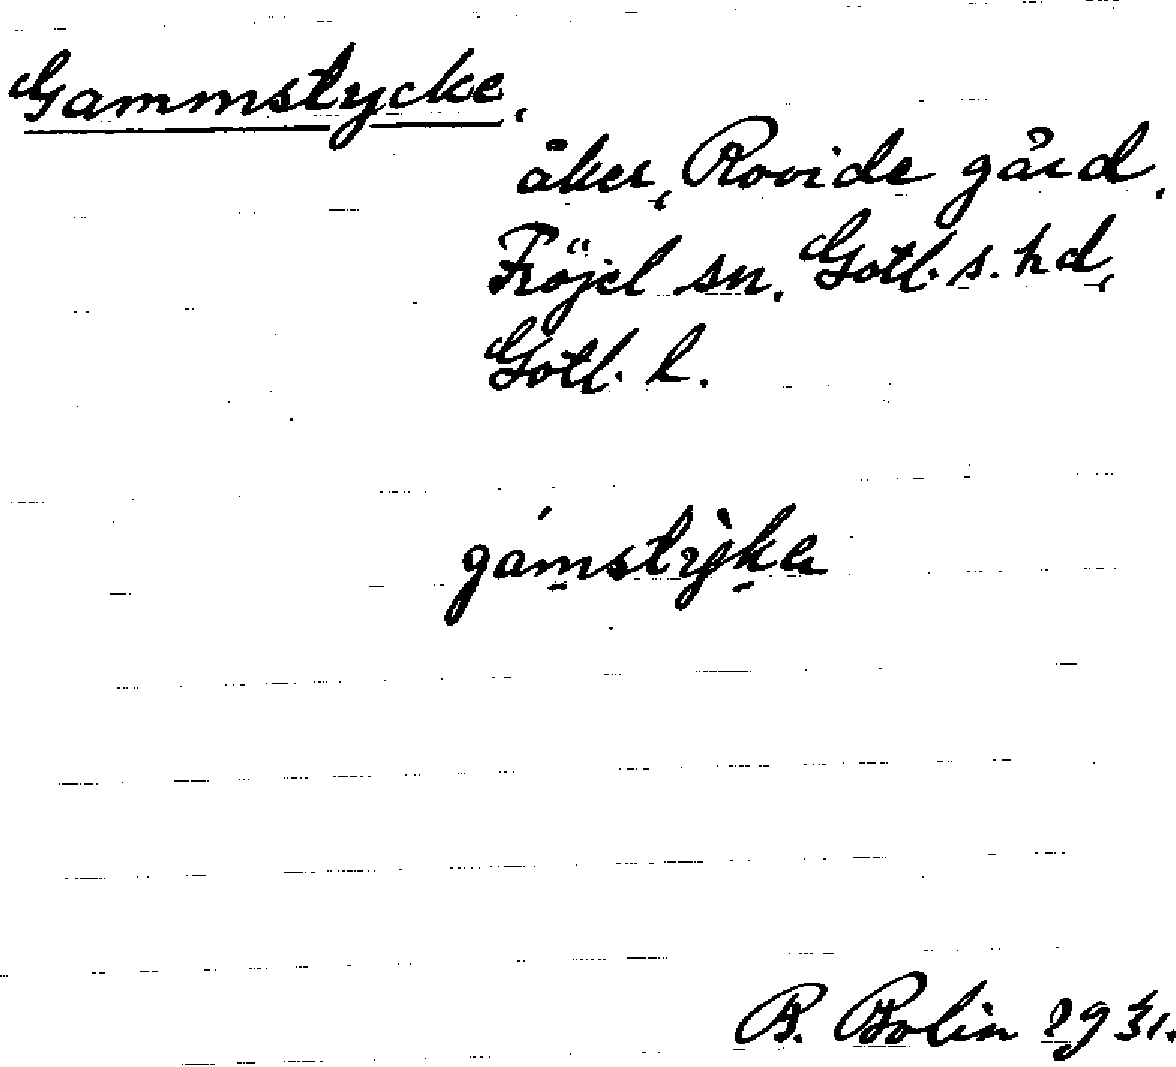 Gammstycke,
åker, Rovide gård,
Fröjel sn, Gotl. s. hd,
Gotl. l.
gámstỳka
B. Bolin 1931.